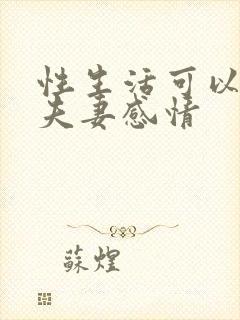 性生活可以
夫妻感情
蘇煌